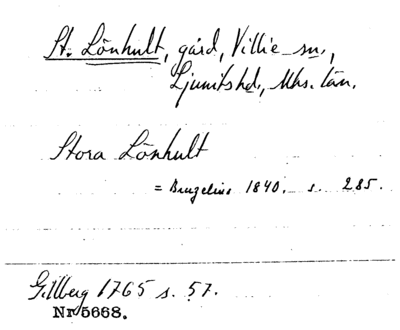 St. Lönhult, gård, Villie sn.,
Ljunitshd, Mhs. län.
Stora Lönhult
= Bruzelius 1840. s. 285.
Gillberg 1765 s. 57.
Nr 5668.